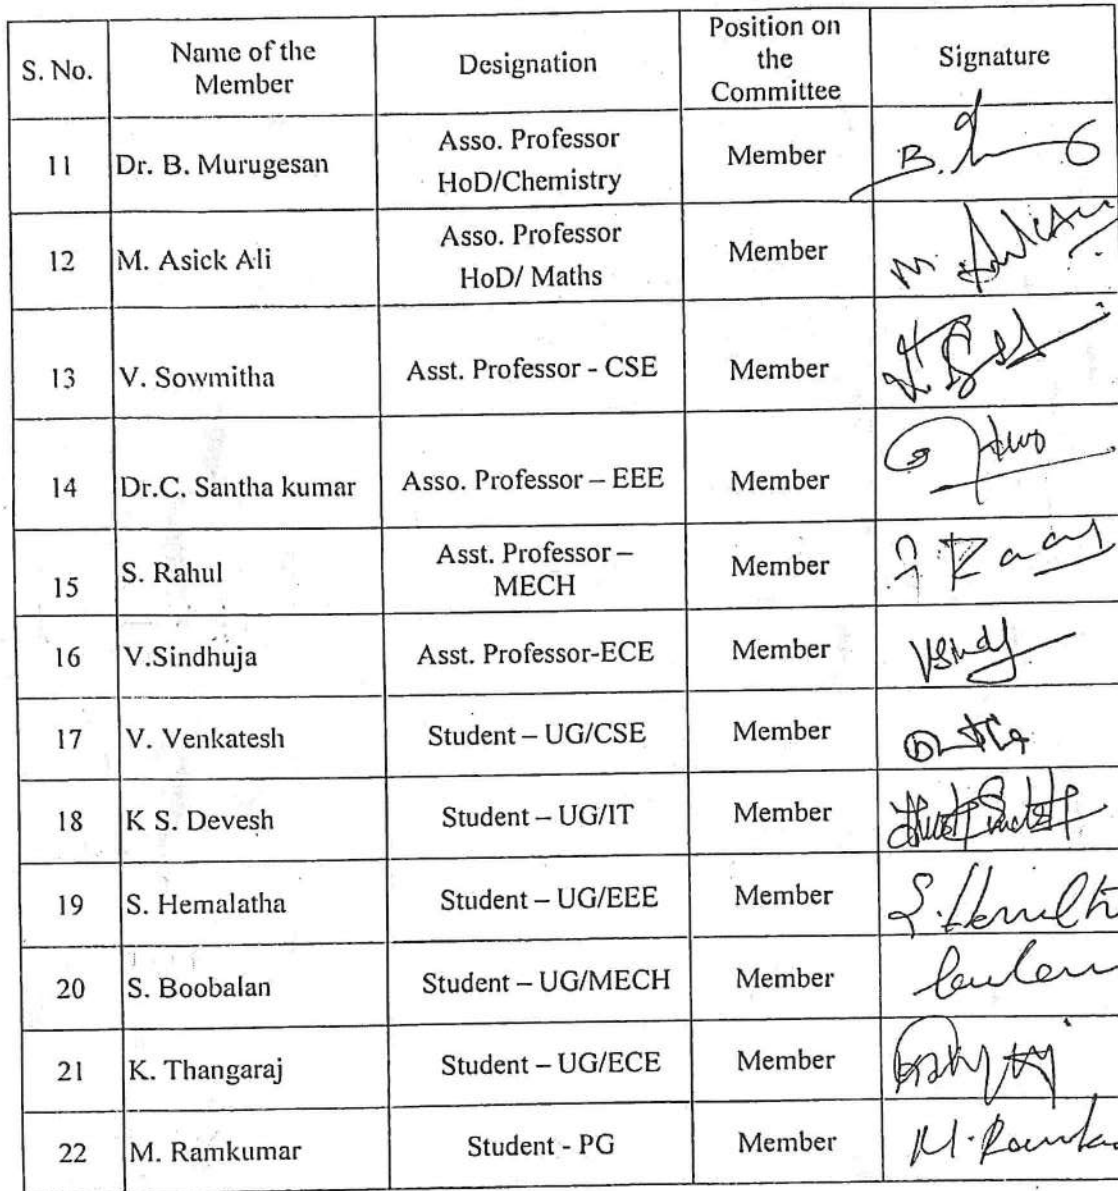 S. No. Name of the Member Designation Position on the Committee Signature
11 Dr. B. Murugesan Asso. Professor HoD/Chemistry Member B.
12 M. Asick Ali Asso. Professor HoD/ Maths Member M.
13 V. Sowmitha Asst. Professor - CSE Member
14 Dr.C. Santha kumar Asso. Professor – EEE Member
15 S. Rahul Asst. Professor – MECH Member
16 V.Sindhuja Asst. Professor-ECE Member
17 V. Venkatesh Student – UG/CSE Member
18 K S. Devesh Student – UG/IT Member
19 S. Hemalatha Student – UG/EEE Member
20 S. Boobalan Student – UG/MECH Member
21 K. Thangaraj Student – UG/ECE Member
22 M. Ramkumar Student - PG Member